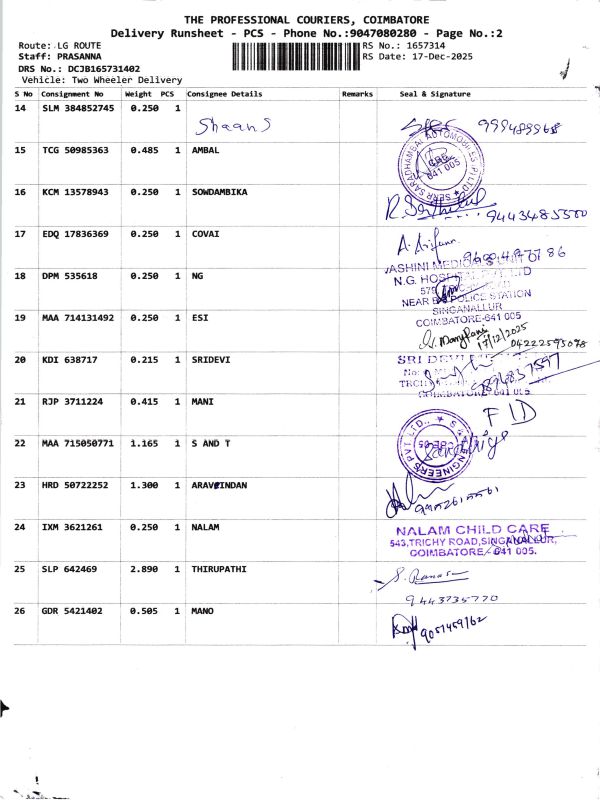 THE PROFESSIONAL COURIERS, COIMBATORE
Delivery Runsheet - PCS - Phone No.:9047080280 - Page No.:2
Route: LG ROUTE RS No.: 1657314
Staff: PRASANNA RS Date: 17-Dec-2025
DRS No.: DCJB165731402
Vehicle: Two Wheeler Delivery
S No Consignment No Weight PCS Consignee Details Remarks Seal & Signature
14 SLM 384852745 0.250 1
Shaans 9994899568
15 TCG 50985363 0.485 1 AMBAL
641 005
16 KCM 13578943 0.250 1 SOWDAMBIKA
9443485500
17 EDQ 17836369 0.250 1 COVAI
18 DPM 535618 0.250 1 NG
N.G. HOSPITAL PVT LTD
NEAR POLICE STATION
SINGANALLUR
COIMBATORE-641 005
19 MAA 714131492 0.250 1 ESI
17/12/2025
04222595078
20 KDI 638717 0.215 1 SRIDEVI
SRI DEVI
COIMBATORE-641 005
21 RJP 3711224 0.415 1 MANI
FID
22 MAA 715050771 1.165 1 S AND T
ENGINEERS PVT. LTD.
23 HRD 50722252 1.300 1 ARAVEINDAN
24 IXM 3621261 0.250 1 NALAM
NALAM CHILD CARE
543, TRICHY ROAD, SINGANALLUR,
COIMBATORE - 641 005.
25 SLP 642469 2.890 1 THIRUPATHI
9443735770
26 GDR 5421402 0.505 1 MANO
9051459162